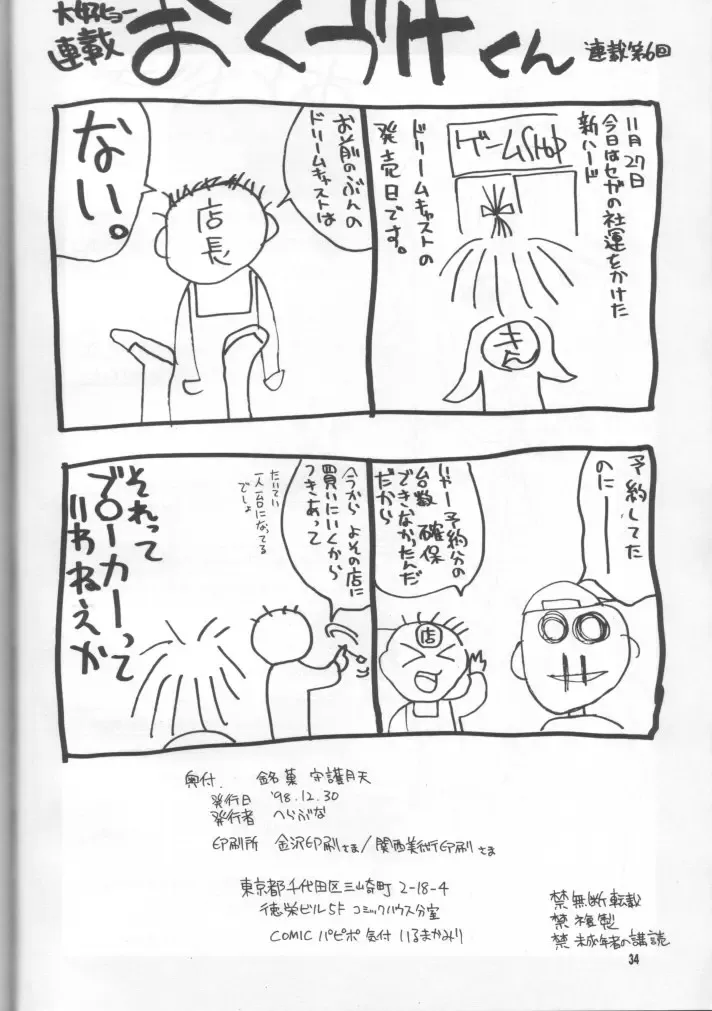 大好ヒョー
連載
おくづけくん
連載第6回
11月27日
今日はセガの社運をかけた
新ハード
ドリームキャストの
発売日です。
ゲームSHOP
きん
お前のぶんの
ドリームキャストは
ない。
店長
予約してた
のにーー
いやー予約分の
台数確保
できなかったんだ
だから
店
今から よその店に
買いにいくから
つきあって
たいてい
一人一台になってる
でしょ
それって
ブローカーって
いわねえか
奥付. 銘菓 守護月天
発行日 '98.12.30
発行者 へらぶな
印刷所 金沢印刷さま/関西美術印刷さま
東京都千代田区三崎町 2-18-4
徳栄ビル5F コミックハウス分室
COMIC パピポ 気付 いるまかみり
禁無断転載
禁複製
禁未成年者の講読
34